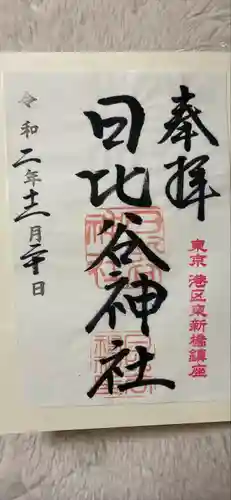 奉拝
東京 港区東新橋鎮座
日比谷神社
令和二年十一月 日